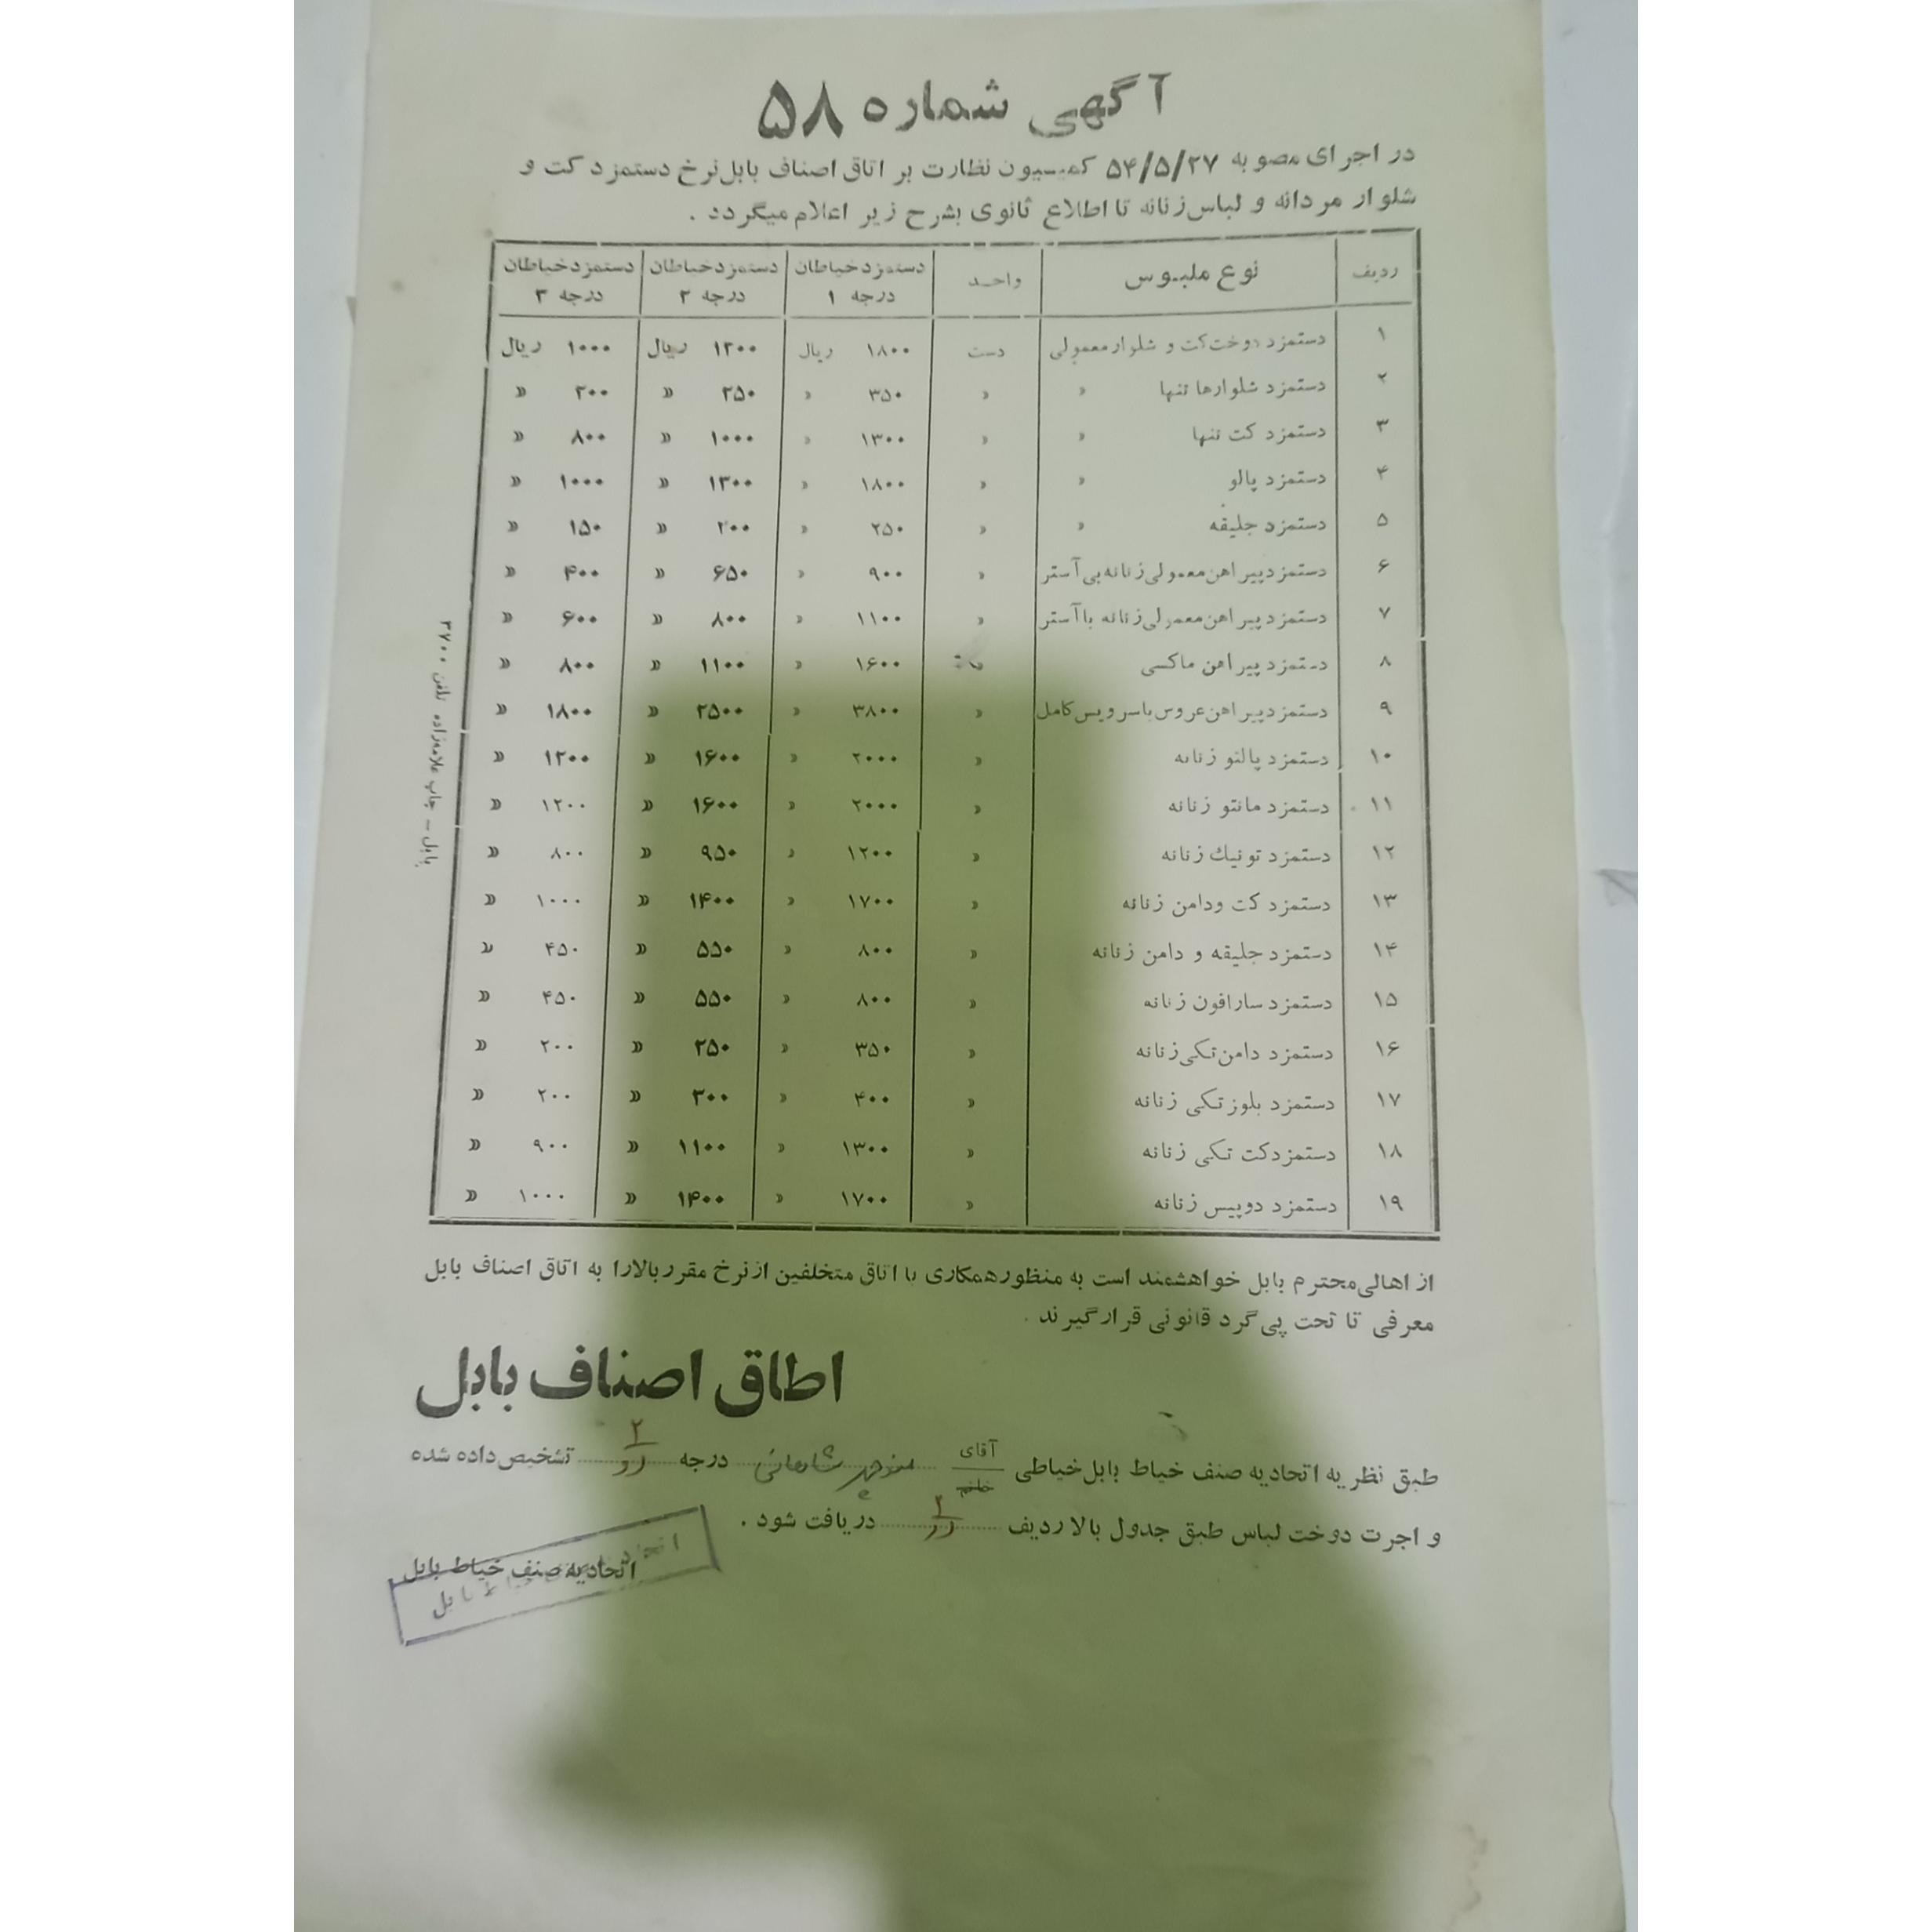 آگهی شماره ۵۸
در اجرای مصوبه ۵۴/۵/۲۷ کمیسیون نظارت بر اتاق اصناف بابل نرخ دستمزد کت و
شلوار مردانه و لباس زنانه تا اطلاع ثانوی بشرح زیر اعلام میگردد .
ردیف نوع ملبوس واحد دستمزد خیاطان درجه ۱ دستمزد خیاطان درجه ۲ دستمزد خیاطان درجه ۳
۱ دستمزد دوخت کت و شلوار معمولی دست ۱۸۰۰ ریال ۱۳۰۰ ریال ۱۰۰۰ ریال
۲ دستمزد شلوارها تنها » » ۳۵۰ » ۲۵۰ » ۲۰۰ »
۳ دستمزد کت تنها » » ۱۳۰۰ » ۱۰۰۰ » ۸۰۰ »
۴ دستمزد پالو » » ۱۸۰۰ » ۱۳۰۰ » ۱۰۰۰ »
۵ دستمزد جلیقه » » ۲۵۰ » ۲۰۰ » ۱۵۰ »
۶ دستمزد پیراهن معمولی زنانه بی آستر » ۹۰۰ » ۶۵۰ » ۴۰۰ »
۷ دستمزد پیراهن معمولی زنانه با آستر » ۱۱۰۰ » ۸۰۰ » ۶۰۰ »
۸ دستمزد پیراهن ماکسی ۱۶۰۰ » ۱۱۰۰ » ۸۰۰ »
۹ دستمزد پیراهن عروس با سرویس کامل » ۳۸۰۰ » ۲۵۰۰ » ۱۸۰۰ »
۱۰ دستمزد پالتو زنانه » ۲۰۰۰ » ۱۶۰۰ » ۱۲۰۰ »
۱۱ دستمزد مانتو زنانه » ۲۰۰۰ » ۱۶۰۰ » ۱۲۰۰ »
۱۲ دستمزد تونیك زنانه » ۱۲۰۰ » ۹۵۰ » ۸۰۰ »
۱۳ دستمزد کت ودامن زنانه » ۱۷۰۰ » ۱۴۰۰ » ۱۰۰۰ »
۱۴ دستمزد جلیقه و دامن زنانه » ۸۰۰ » ۵۵۰ » ۴۵۰ »
۱۵ دستمزد سارافون زنانه » ۸۰۰ » ۵۵۰ » ۴۵۰ »
۱۶ دستمزد دامن تکی زنانه » ۳۵۰ » ۲۵۰ » ۲۰۰ »
۱۷ دستمزد بلوز تکی زنانه » ۴۰۰ » ۳۰۰ » ۲۰۰ »
۱۸ دستمزد کت تکی زنانه » ۱۳۰۰ » ۱۱۰۰ » ۹۰۰ »
۱۹ دستمزد دوپیس زنانه » ۱۷۰۰ » ۱۴۰۰ » ۱۰۰۰ »
بابل – چاپ علامه‌زاده تلفن ۳۷۰۰
از اهالی محترم بابل خواهشمند است به منظور همکاری با اتاق متخلفین از نرخ مقرر بالا را به اتاق اصناف بابل
معرفی تا تحت پی گرد قانونی قرار گیرند .
اطاق اصناف بابل
طبق نظریه اتحادیه صنف خیاط بابل خیاطی آقای خانم منوچهر درجه ۲ دو تشخیص داده شده
و اجرت دوخت لباس طبق جدول بالا ردیف ۲ دو دریافت شود .
اتحادیه صنف خیاط بابل